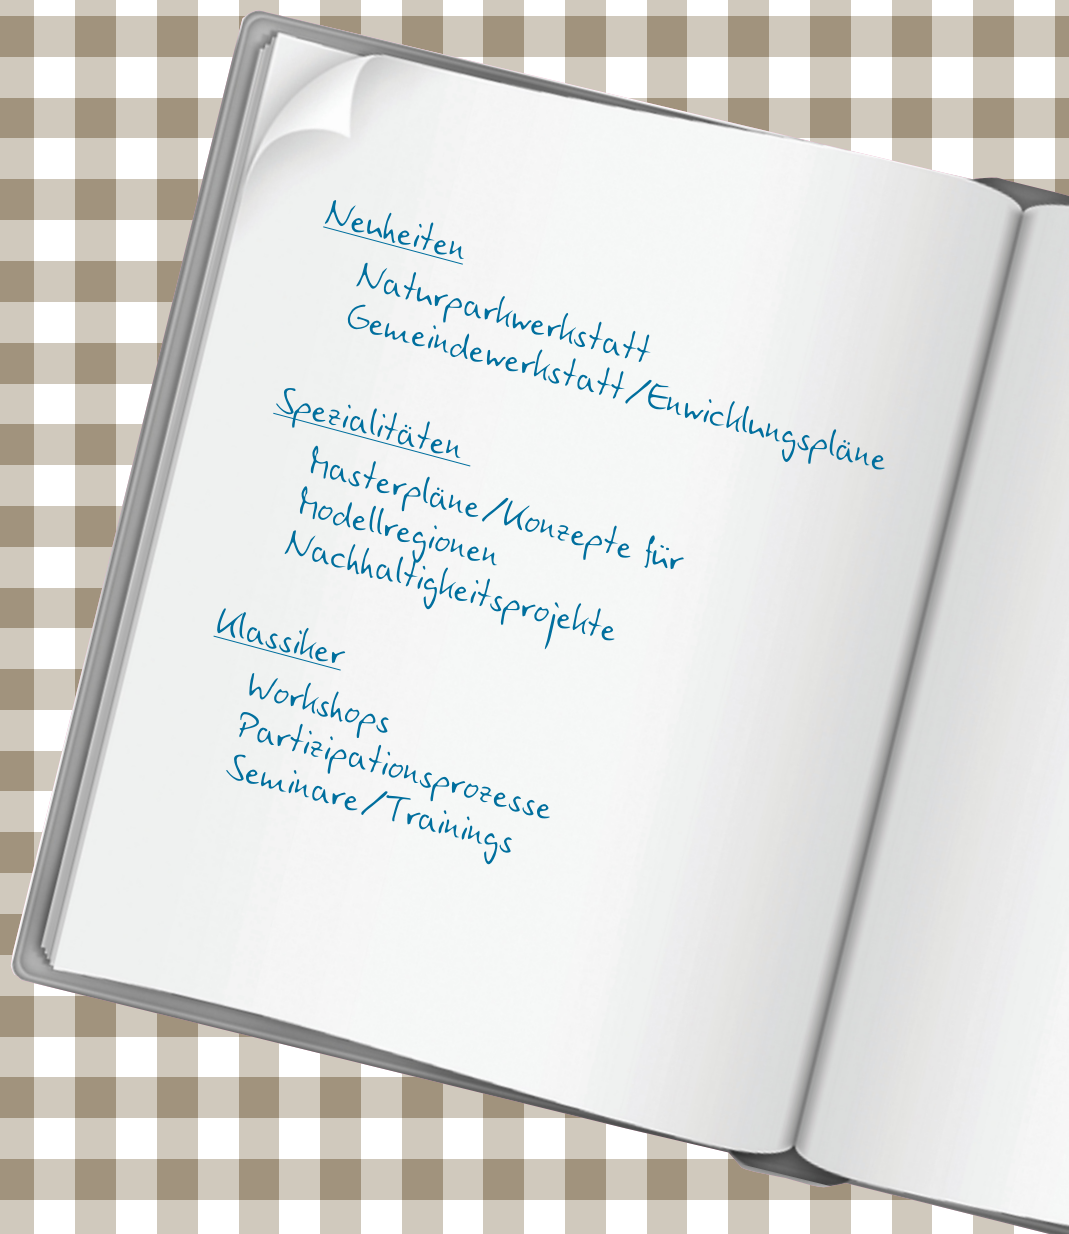 Neuheiten
Naturparkwerkstatt
Gemeindewerkstatt/Enwicklungspläne
Spezialitäten
Masterpläne/Konzepte für
Modellregionen
Nachhaltigkeitsprojekte
Klassiker
Workshops
Partizipationsprozesse
Seminare/Trainings